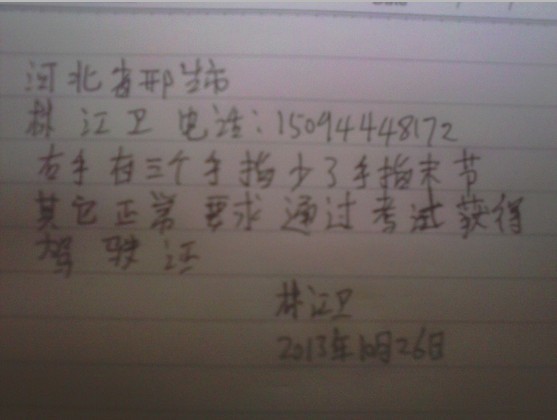 河北省邢台市
林江卫 电话:15094448172
右手有三个手指少了手指末节
其它正常 要求通过考试获得
驾驶证
林江卫
2013年10月26日